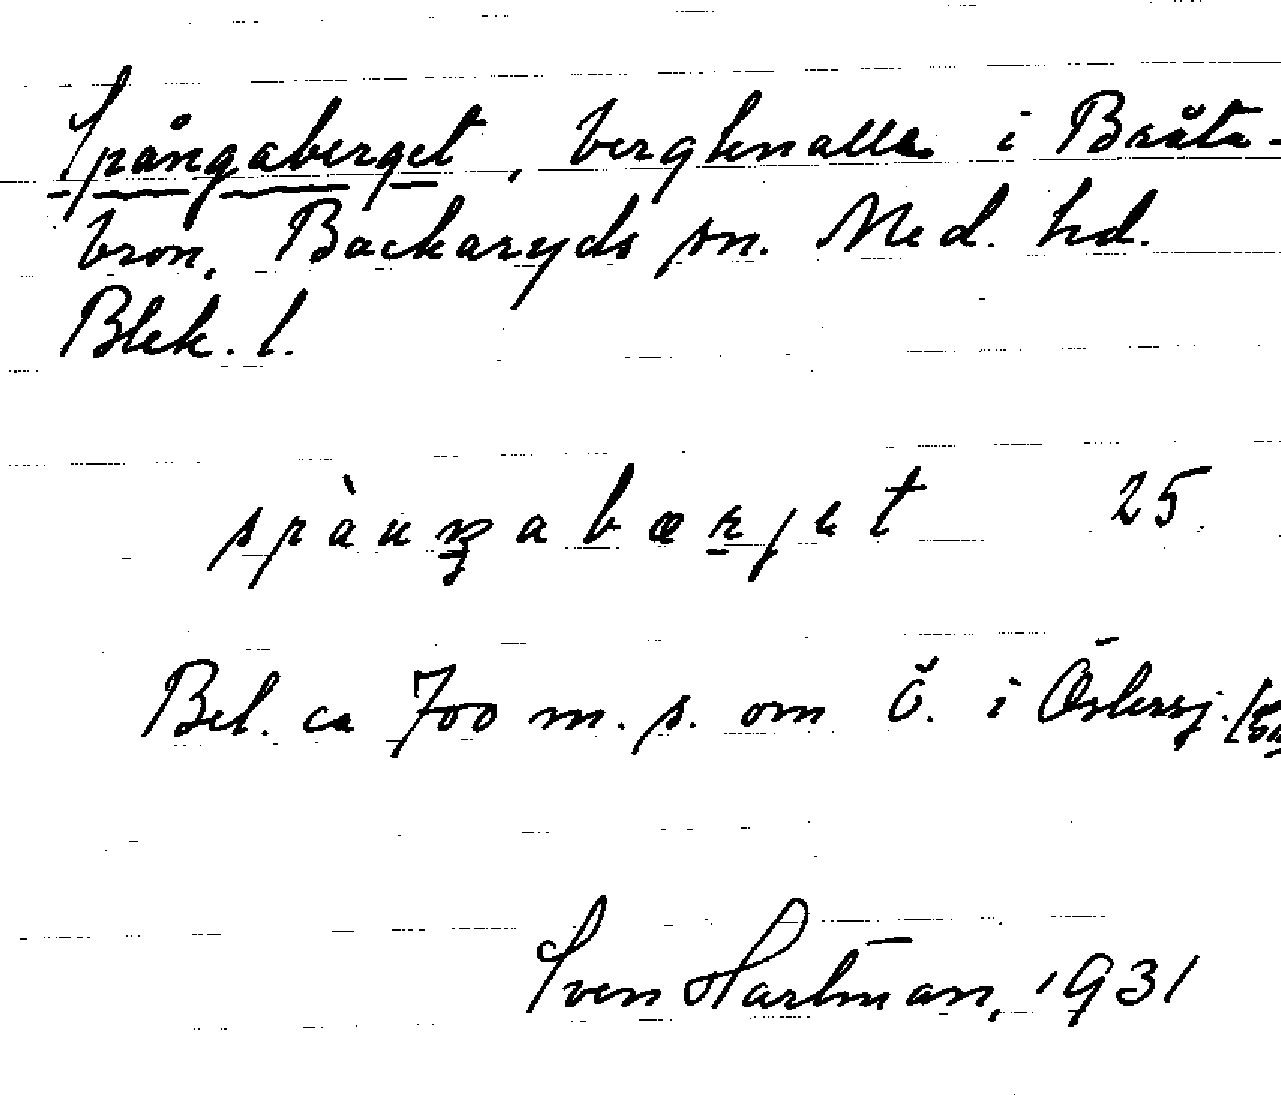 Spångaberget, bergknalle i Bråta-
bron, Backaryds sn. Med. hd.
Blek. l.
25
Bel. ca 700 m. s. om Ö. i Östersj.
Sven Hartman, 1931